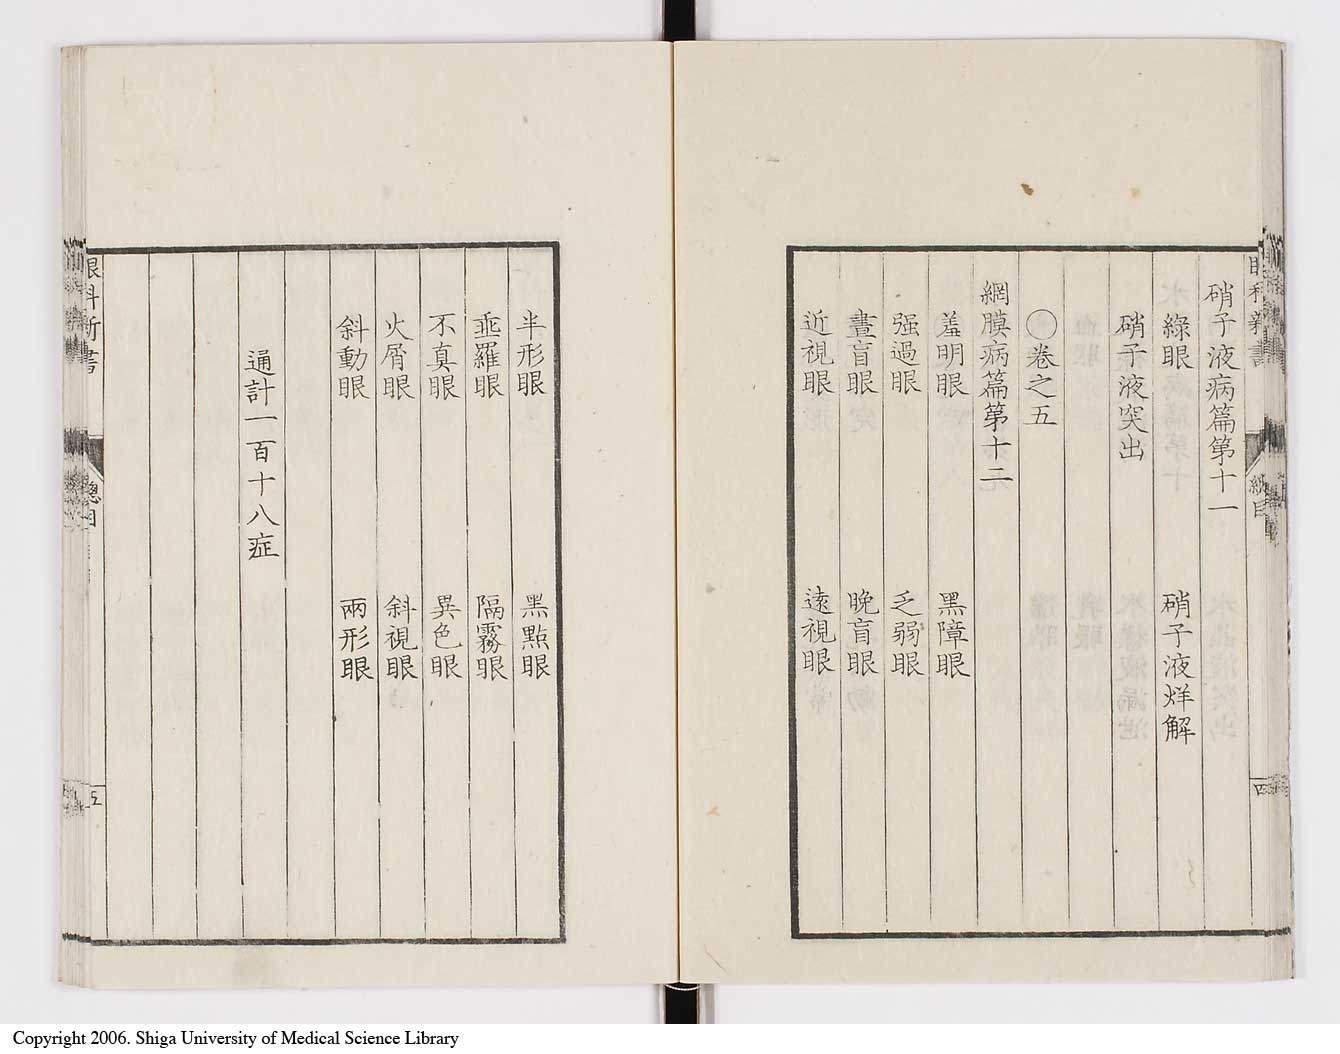 硝子液病篇第十一
綠眼 硝子液烊解
硝子液突出
〇卷之五
網膜病篇第十二
羞明眼 黑障眼
强過眼 乏弱眼
晝盲眼 晚盲眼
近視眼 遠視眼
半形眼 黑點眼
垂羅眼 隔霧眼
不真眼 異色眼
火屑眼 斜視眼
斜動眼 兩形眼
通計一百十八症
眼科新書
總目
五
Copyright 2006. Shiga University of Medical Science Library